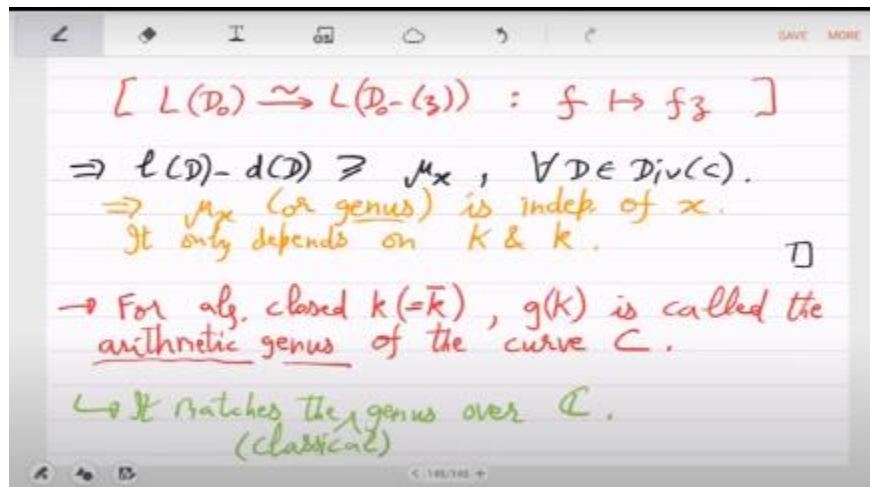 SAVE MORE
[ L(D₀) ⥲ L(D₀-(z)) : f ↦ fz ]
⇒ l(D) - d(D) ⩾ μₓ , ∀ D ∈ Div(C).
⇒ μₓ (or genus) is indep. of x.
It only depends on K & k.
→ For alg. closed k(=k̄), g(K) is called the
arithmetic genus of the curve C.
↳ It matches the ∧ genus over ℂ.
(classical)
< 146/146 +